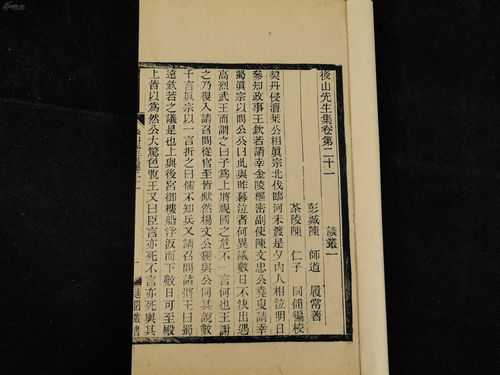 後山先生集卷第二十一
談叢一
彭城陳 師道 履常著
茶陵陳 仁子 同俌編校
契丹侵澶萊公相眞宗北伐臨河未渡是夕內人相泣明日
參知政事王欽若請幸金陵樞密副使陳文忠公堯叟請幸
蜀眞宗以問公公曰此與昨暮泣者何異議數日不決出遇
高烈武王而謂之曰子爲上將視國之危不一言何也王謝
之乃復入請召問從官至皆默然楊文公獨與公同其說數
千言眞宗以一言折之曰儒不知兵又請召問諸將王曰蜀
遠欽若之議是也上與後宮御樓船浮汳而下數日可至殿
上皆以爲然公大驚色脫王又曰臣言亦死不言亦死與其
適園叢書